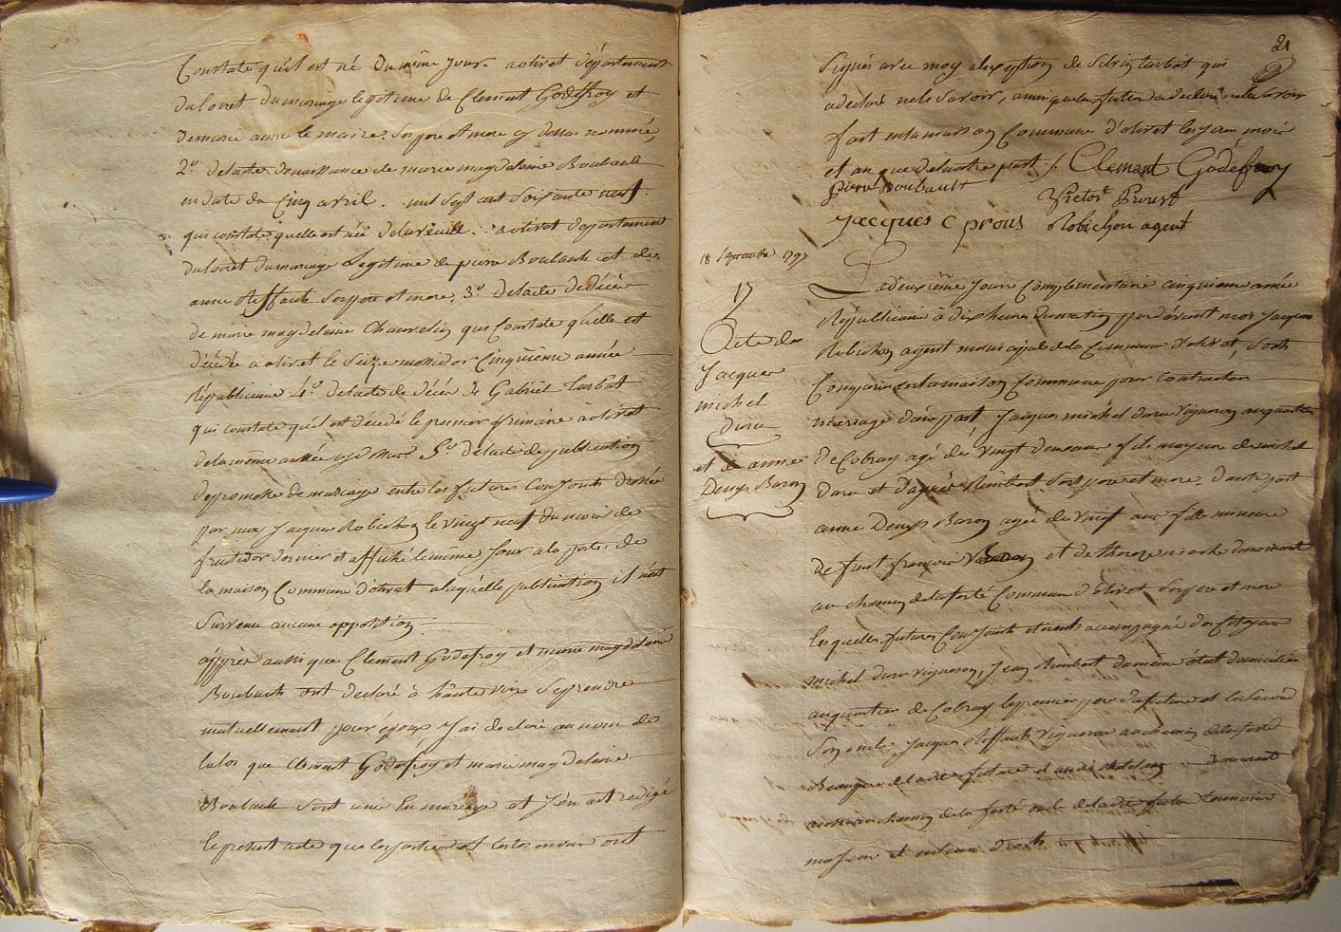 Constate qu'il est né du même jour a olivet département
du loiret du mariage legitime de Clement Godeffroy et
de marie anne le maire ses pere et mere cy dessus nommés,
2º de lacte de naissance de marie magdelaine Boubault
en date du Cinq avril mil sept cent soixante neuf
qui constate quelle est née de la veille a olivet département
du loiret du mariage Legitime de pierre Boubault et de
anne Reffault ses pere et mere, 3º de lacte de décès
de marie magdelaine Chauvelin qui Constate qu'elle est
décédée a olivet le seize messidor Cinquième année
Républicaine 4º de lacte de décès de Gabriel tarbat
qui constate qu'il est décédé le premier frimaire a olivet
de la même année 5º de lacte de publication
de promesse de mariage entre les futurs Conjoints dressée
par moy Jacques Robichon le vingt neuf du mois de
fructidor dernier et affiché le même Jour a la porte de
la maison Commune d'olivet a laquelle publication il n'est
Survenu aucune opposition
après aussi que Clement Godefroy et marie magdelaine
Boubault ont declaré à haute voix se prendre
mutuellement pour époux J'ai declaré au nom de
la loi que Clement Godefroy et marie magdelaine
Boubault sont unis En mariage et J'en ait redigé
le present acte que les parties et les temoins ont
21
Signés avec moy a lexception de tarbat qui
a declaré ne le savoir, ainsi que la future a declaré ne le savoir
fait en la maison Commune d'olivet les jour mois
et an que de lautre part ./. Clement Godefroy
pierre boubault Victor Proust
Jacques C prous Robichon agent
18 Septembre 1797
17
Acte de
Jacques
michel
Daru
et de anne
Denyse Baron
Le deuxième Jour Complementaire cinquieme année
Républicaine à dix heures du matin par devant moi Jacques
Robichon agent municipal de la Commune d'olivet, sont
Comparus en la maison Commune pour Contracter
mariage d'une part Jacques michel daru vigneron au quartier
de Cobray agé de vingt deux ans fils mageur de michel
Daru et d'agnès Rimbert ses pere et mere, d'autre part
anne Denyse Baron agée de vingt ans fille mineure
de feu françois Baron et de therese marche demeurant
au chemin de la ferté Commune d'olivet ses pere et mere
lesquelles futures Conjoints etaient accompagné des Citoyens
michel daru vigneron, Jean Rimbert du même état domiciliés
au quartier de Cobray le premier pere du futur et le second
son oncle, Jacques Reffault vigneron au chemin de la ferté
Beaupere de la ditte future et andré demeurant
au chemin de la ferté oncle de la ditte future temoins
majeurs et